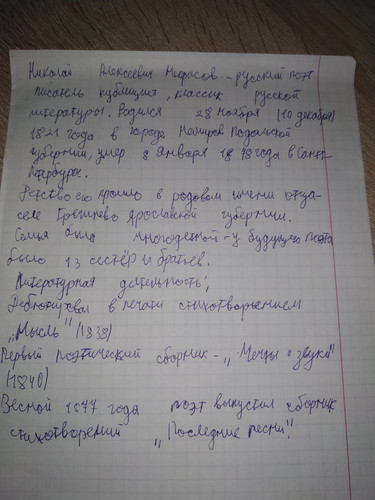 Николай Алексеевич Некрасов - русский поэт
писатель публицист, классик русской
литературы. Родился 28 ноября (10 декабря)
1821 года в городе Немиров Подольской
губернии, умер 8 января 1878 года в Санкт-
Петербурге.
Детство его прошло в родовом имении отца-
селе Грешнево Ярославской губернии.
Семья была многодетной-у будущего поэта
было 13 сестёр и братьев.
Литературная деятельность;
Дебютировал в печати стихотворением
"Мысль" (1838)
Первый поэтический сборник - "Мечты и звуки"
(1840)
Весной 1877 года поэт выпустил сборник
стихотворений "Последние песни".